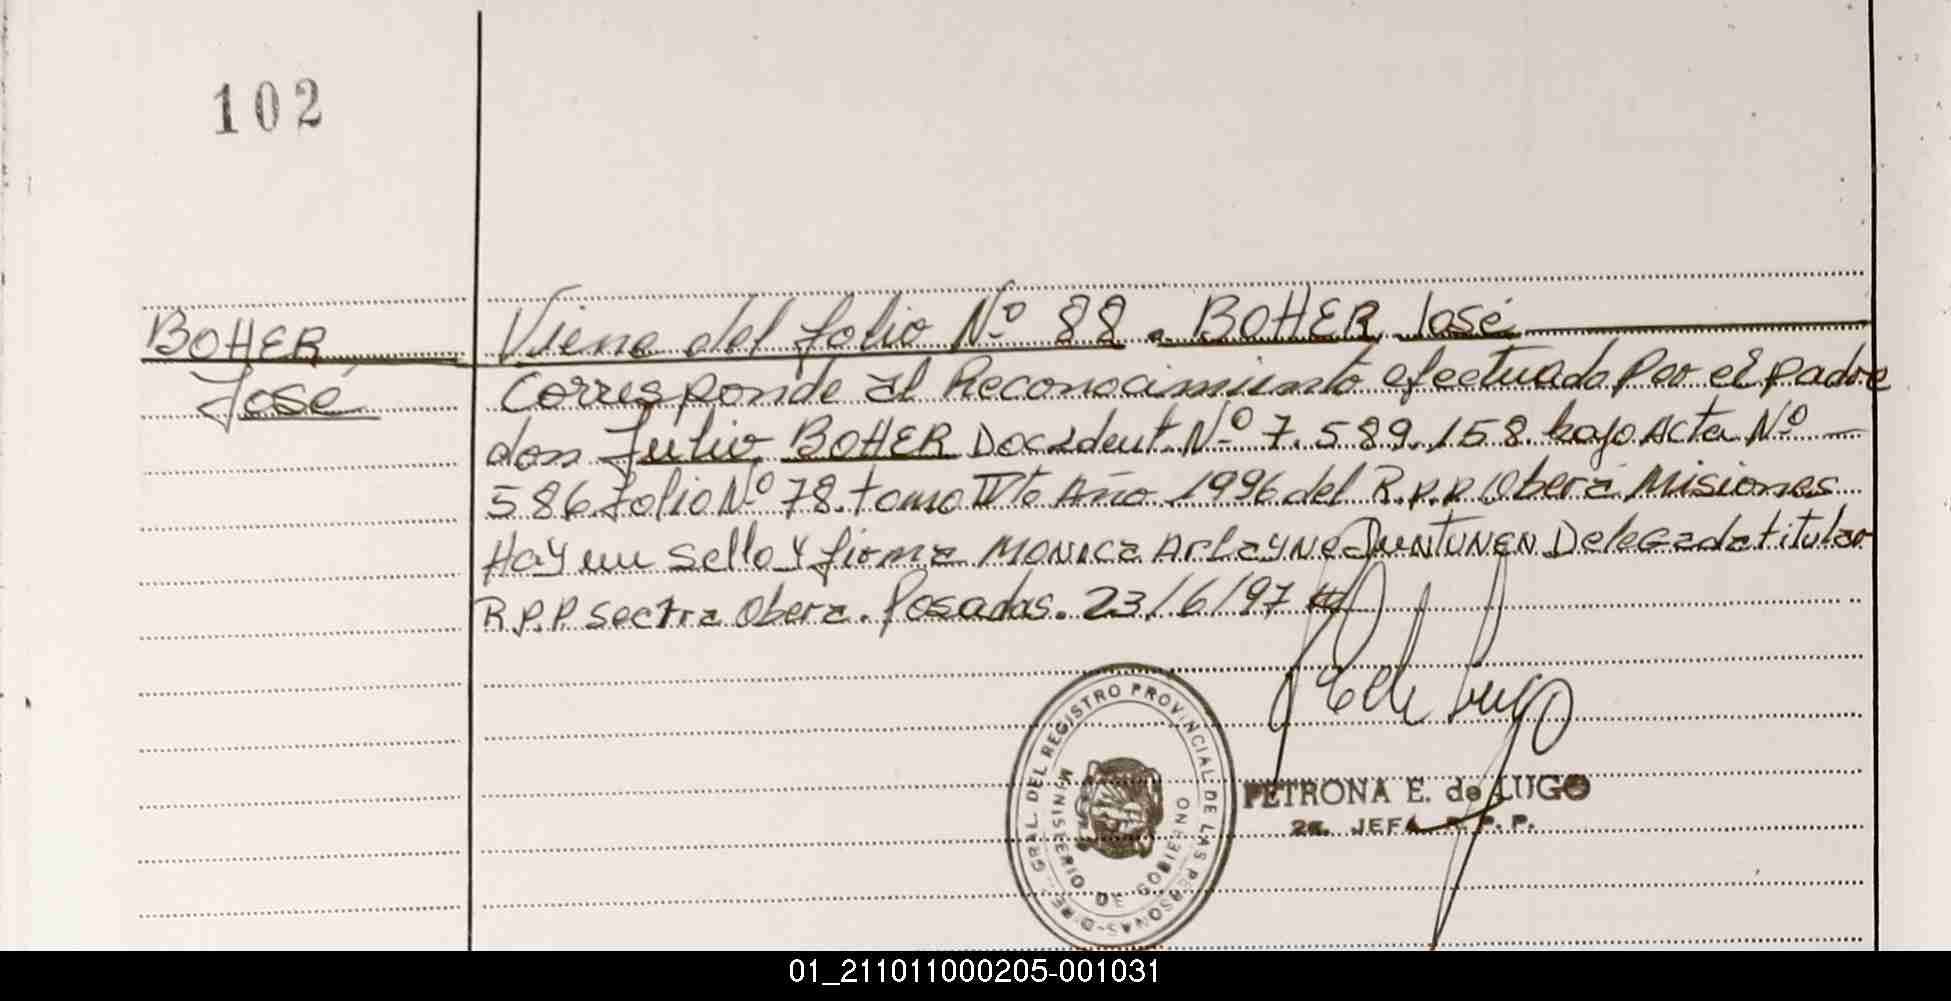 102
BOHER
José
Viene del folio Nº 88. BOHER José
Corresponde al Reconocimiento efectuado Por el padre
don Julio BOHER Doc Ident Nº 7.589.158. bajo Acta Nº —
586 folio Nº 78. tomo IVto Año 1996 del R.P.P Oberá Misiones
Hay un sello y firma MONICA Arlayne JUNTUNEN Delegada titular
R.P.P Sec 1ra Obera. Posadas. 23/6/97
DIRE. GRAL. DEL REGISTRO PROVINCIAL DE LAS PERSONAS
MINISTERIO DE GOBIERNO
PETRONA E. de LUGO
2a. JEFA R.P.P.
01_211011000205-001031